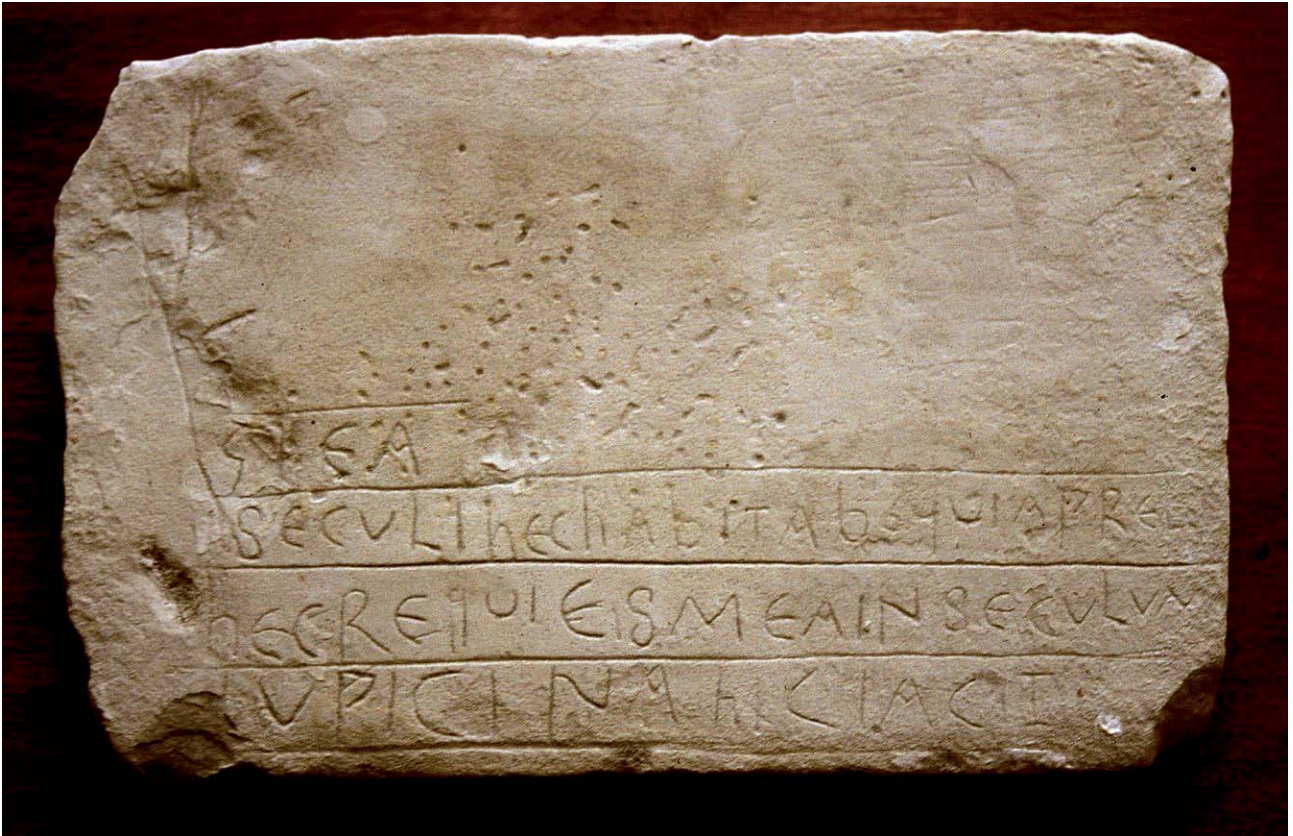 SIEA
SECULI hEC hAbITAbO qUIA PREE
hEC REqUIEIS MEA IN SECULUM
LVPICINA hIC IACIT